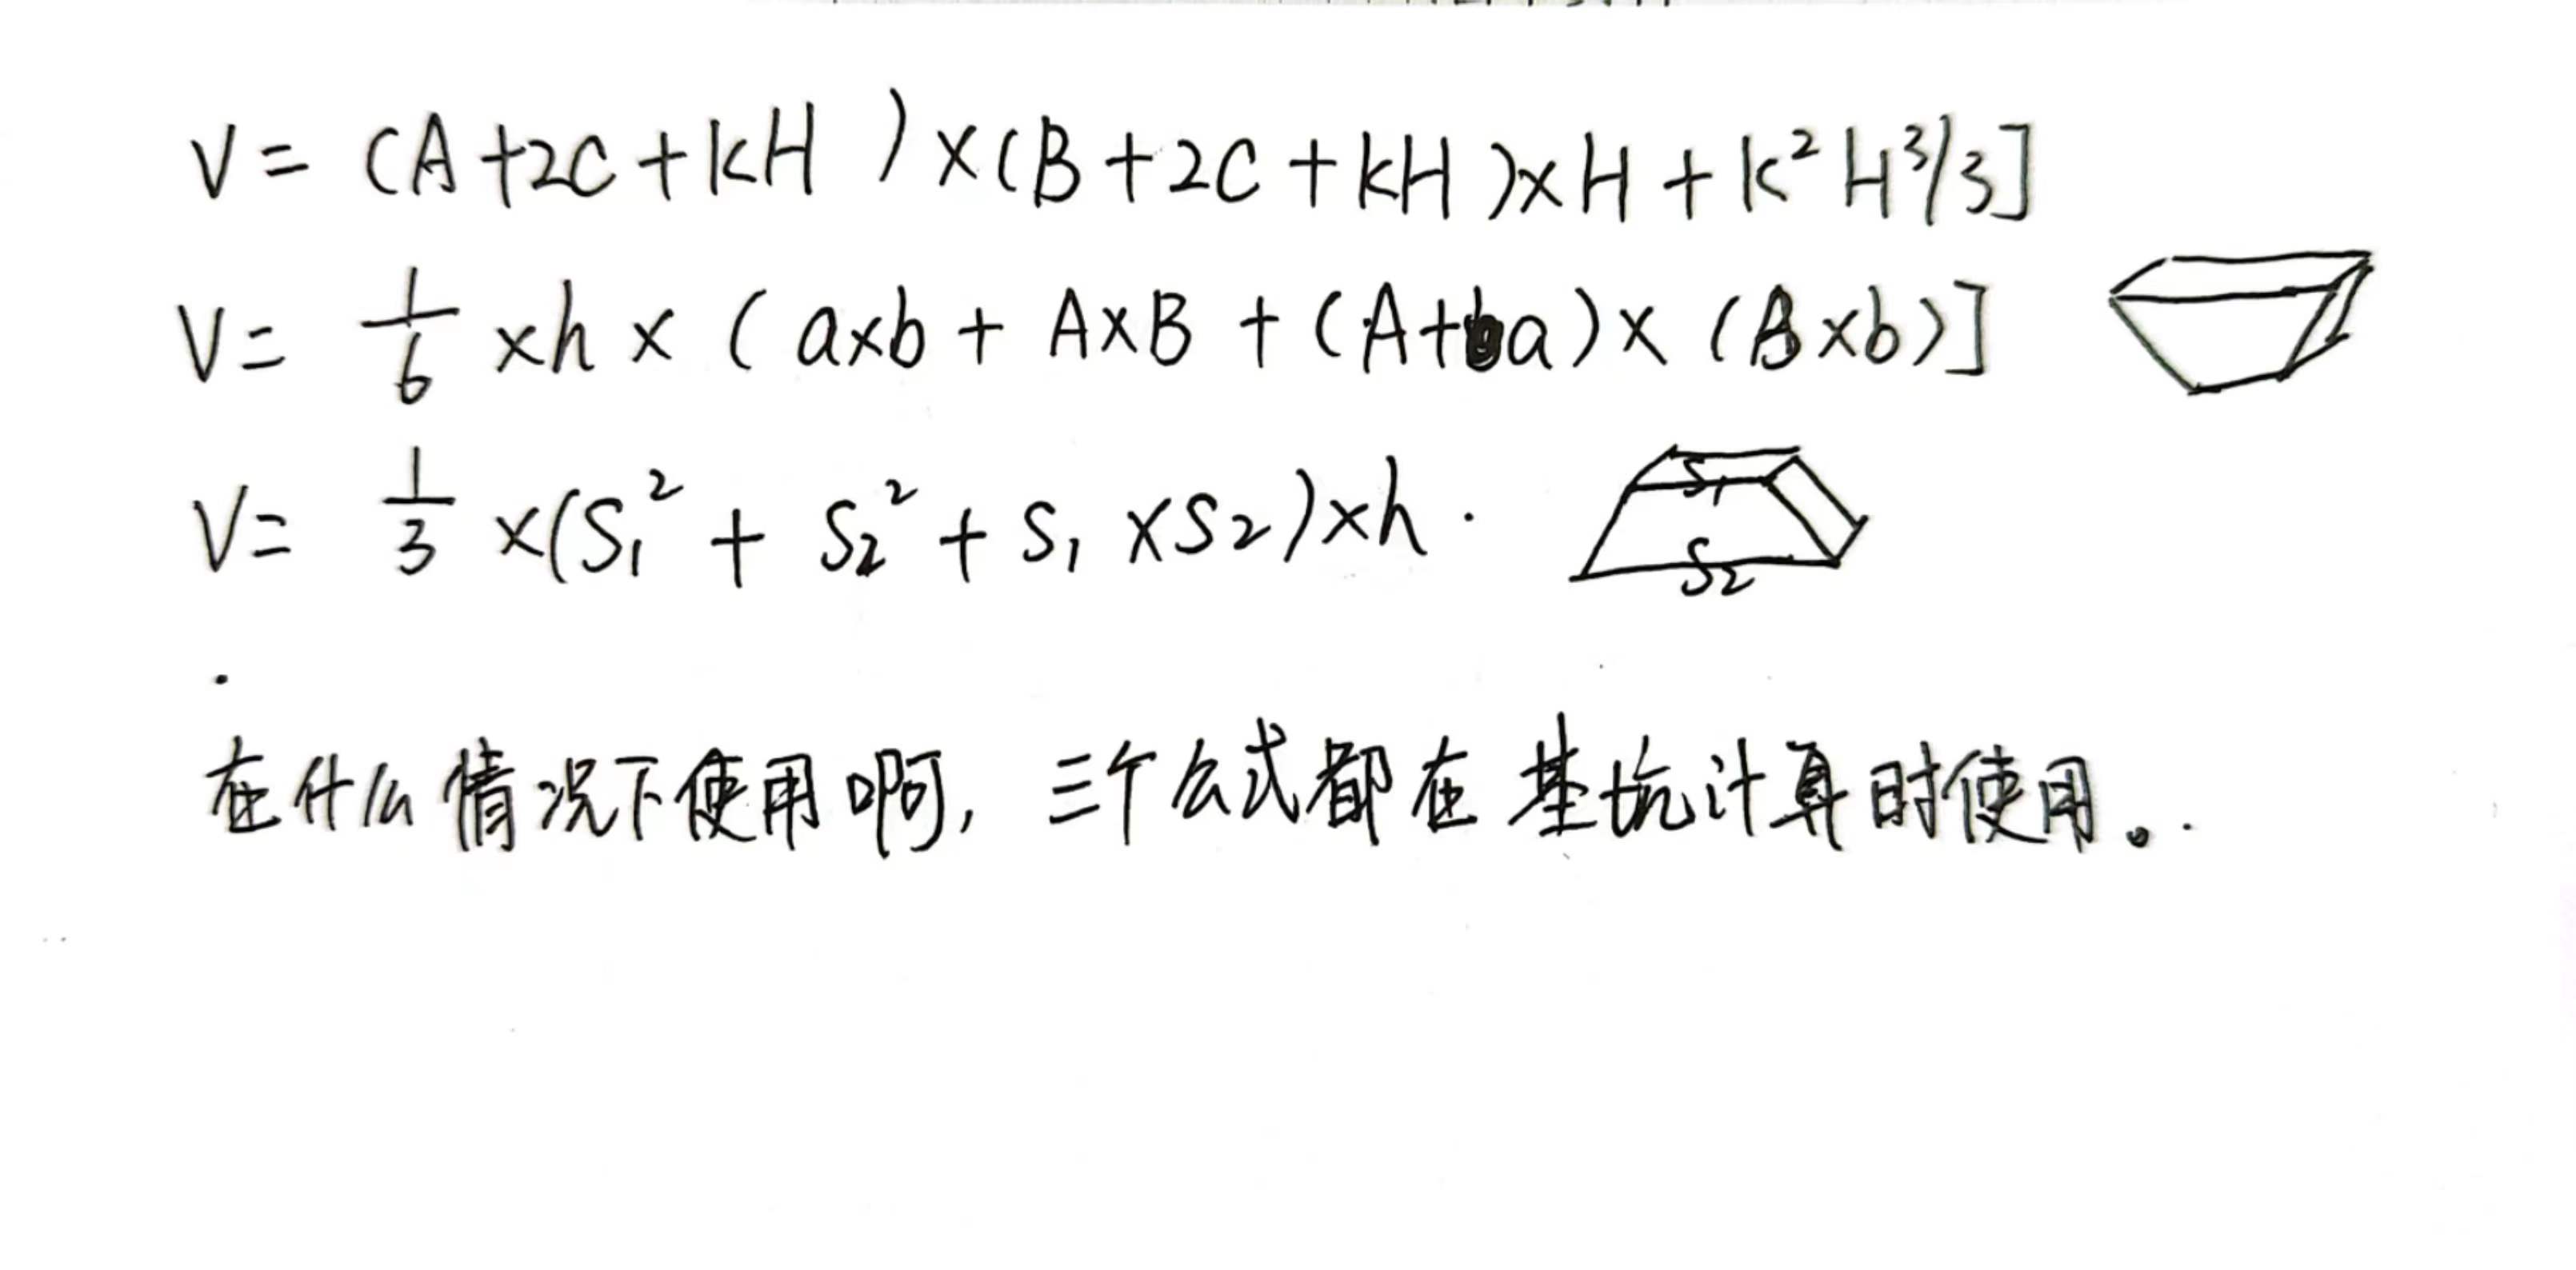 V = (A+2C+KH )×(B+2C+KH)×H+K²H³/3]
V= 1/6 ×h×( a×b+ A×B +(A+a)× (B×b)]
V= 1/3 ×(S₁² + S₂² + S₁ ×S₂)×h.
S₁
S₂
在什么情况下使用啊, 三个公式都在基坑计算时使用。